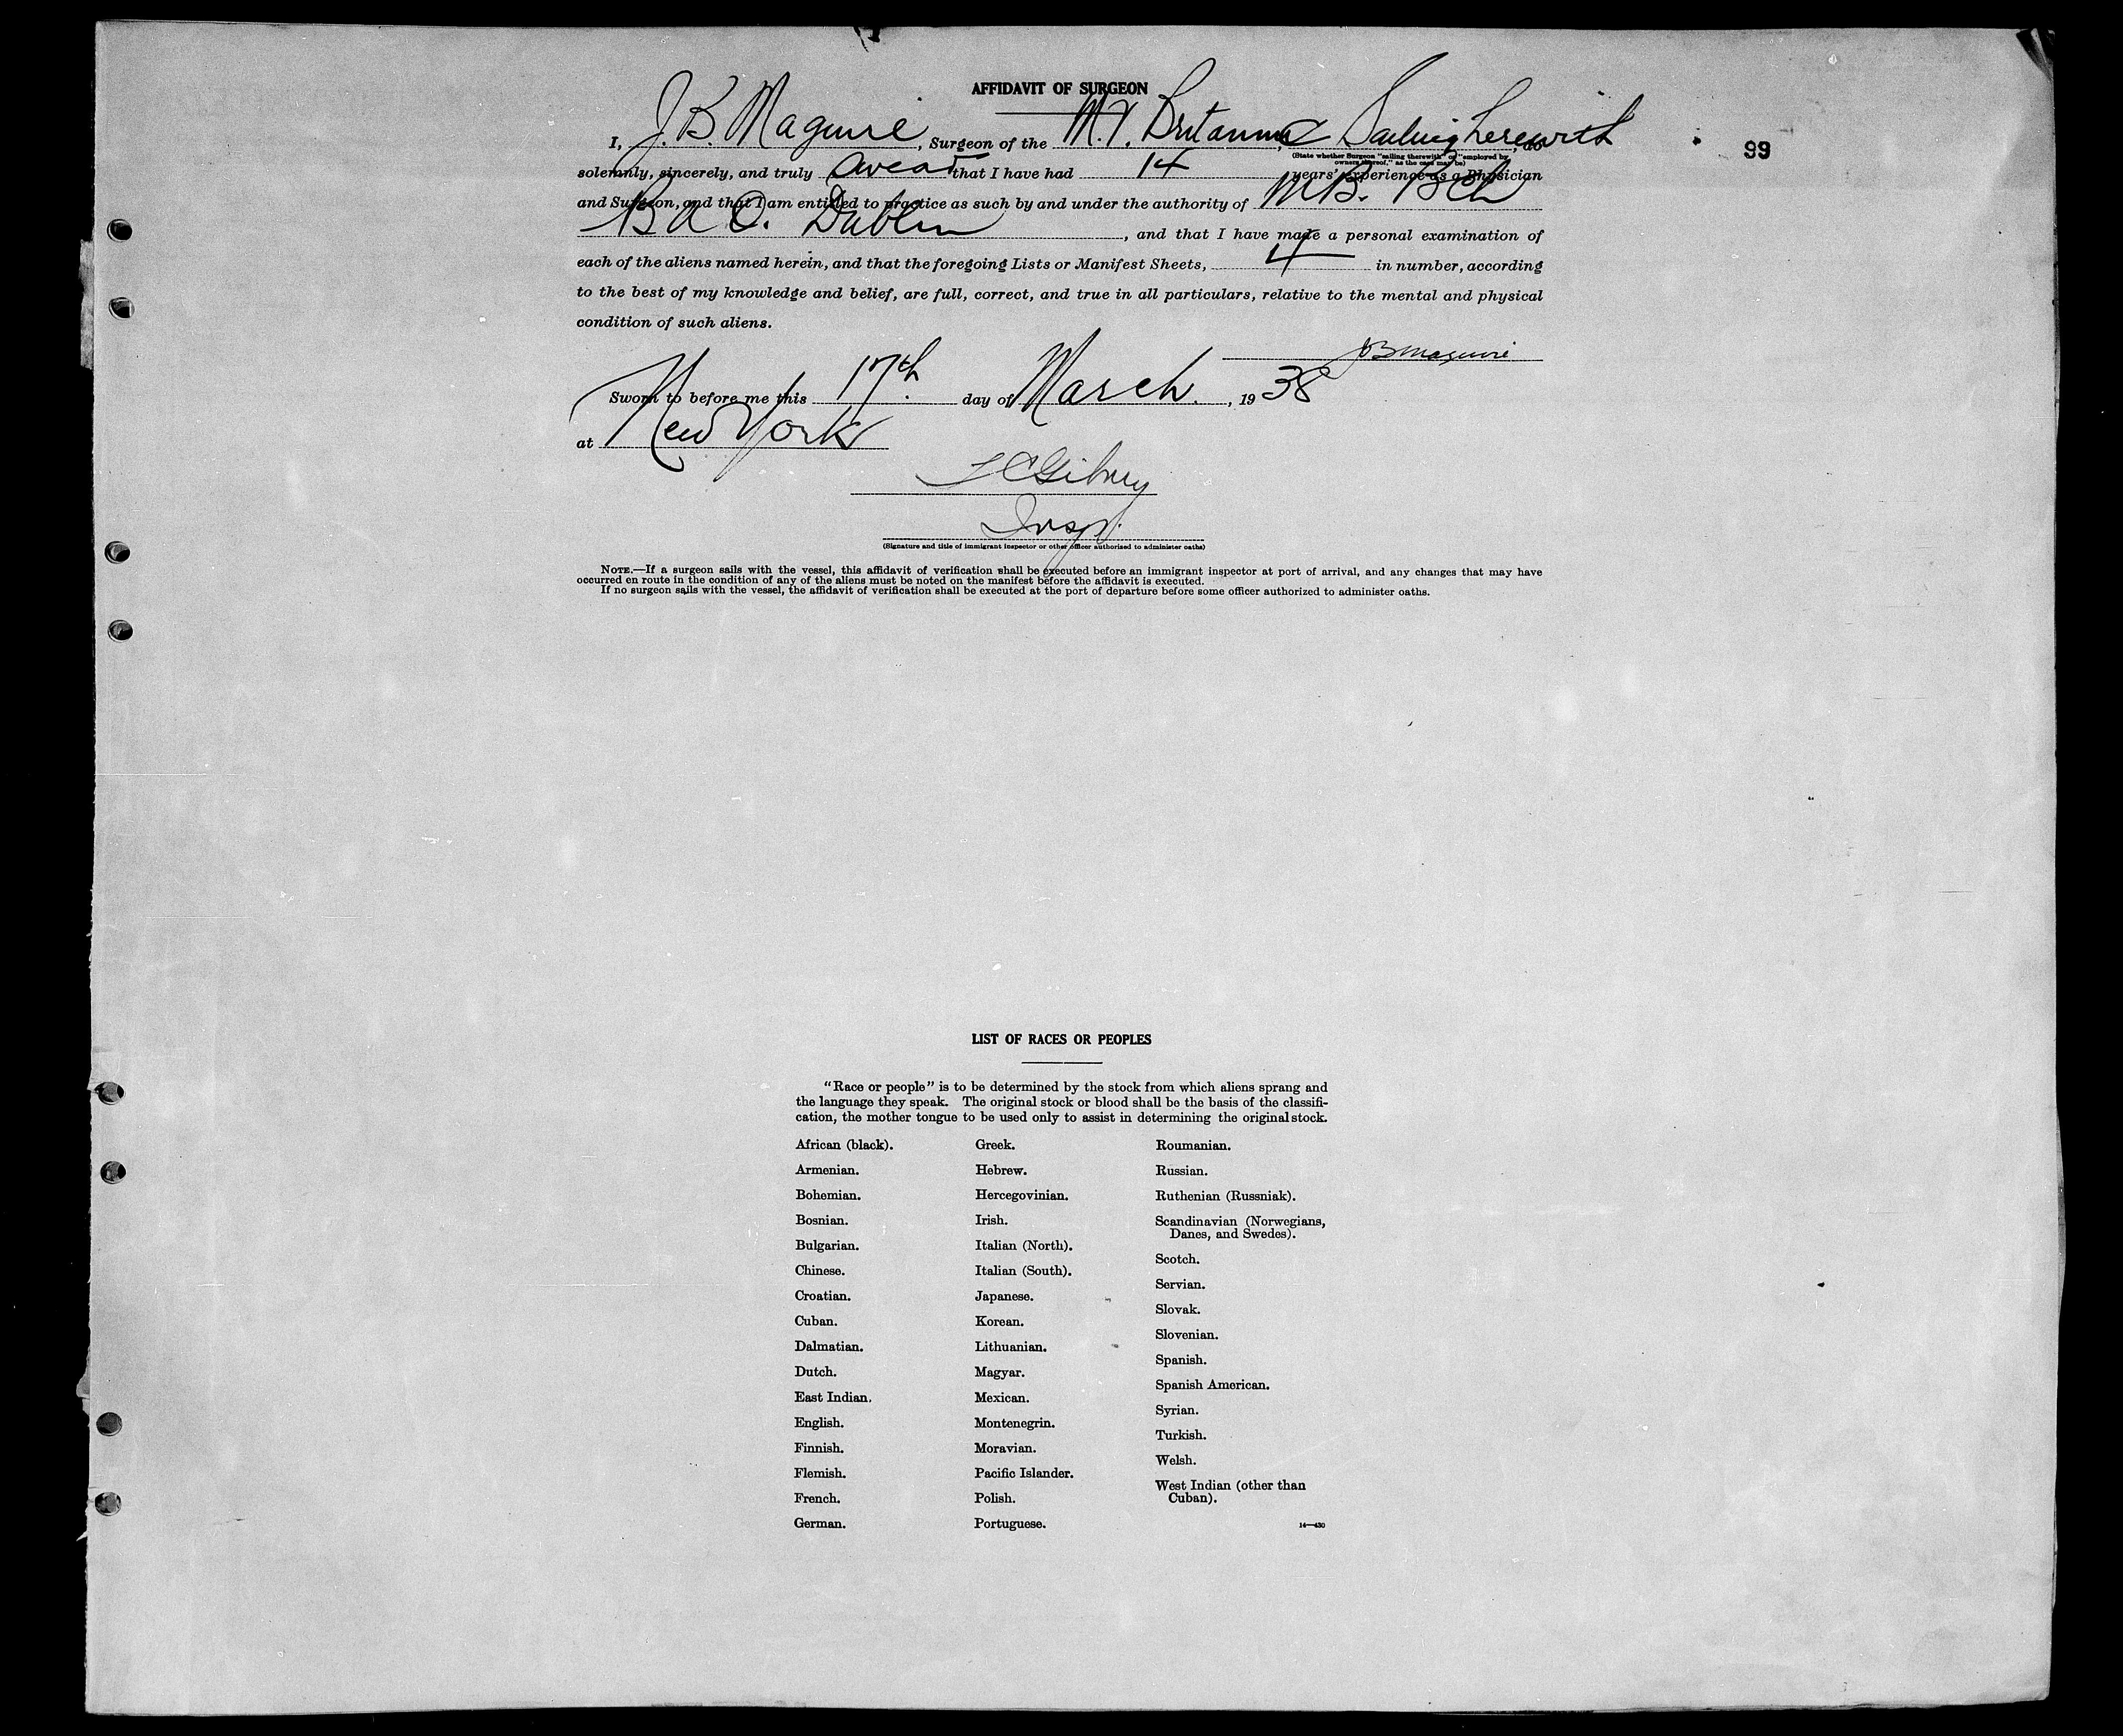 AFFIDAVIT OF SURGEON
I, J. B. Maguire, Surgeon of the M.V. Britannic, Sailing herewith, do
99
(State whether Surgeon "sailing therewith" or "employed by
owners thereof," as the case may be)
solemnly, sincerely, and truly swear that I have had 14 years' experience as a Physician
and Surgeon, and that I am entitled to practice as such by and under the authority of M.B. BCh
B A O. Dublin, and that I have made a personal examination of
each of the aliens named herein, and that the foregoing Lists or Manifest Sheets, 4 in number, according
to the best of my knowledge and belief, are full, correct, and true in all particulars, relative to the mental and physical
condition of such aliens.
JB Maguire
Sworn to before me this 17th. day of March., 19 38
at New York
Gibney
Insp.
(Signature and title of immigrant inspector or other officer authorized to administer oaths)
NOTE.—If a surgeon sails with the vessel, this affidavit of verification shall be executed before an immigrant inspector at port of arrival, and any changes that may have
occurred en route in the condition of any of the aliens must be noted on the manifest before the affidavit is executed.
If no surgeon sails with the vessel, the affidavit of verification shall be executed at the port of departure before some officer authorized to administer oaths.
LIST OF RACES OR PEOPLES
"Race or people" is to be determined by the stock from which aliens sprang and
the language they speak. The original stock or blood shall be the basis of the classifi-
cation, the mother tongue to be used only to assist in determining the original stock.
African (black).
Armenian.
Bohemian.
Bosnian.
Bulgarian.
Chinese.
Croatian.
Cuban.
Dalmatian.
Dutch.
East Indian.
English.
Finnish.
Flemish.
French.
German.
Greek.
Hebrew.
Hercegovinian.
Irish.
Italian (North).
Italian (South).
Japanese.
Korean.
Lithuanian.
Magyar.
Mexican.
Montenegrin.
Moravian.
Pacific Islander.
Polish.
Portuguese.
Roumanian.
Russian.
Ruthenian (Russniak).
Scandinavian (Norwegians,
Danes, and Swedes).
Scotch.
Servian.
Slovak.
Slovenian.
Spanish.
Spanish American.
Syrian.
Turkish.
Welsh.
West Indian (other than
Cuban).
14—430